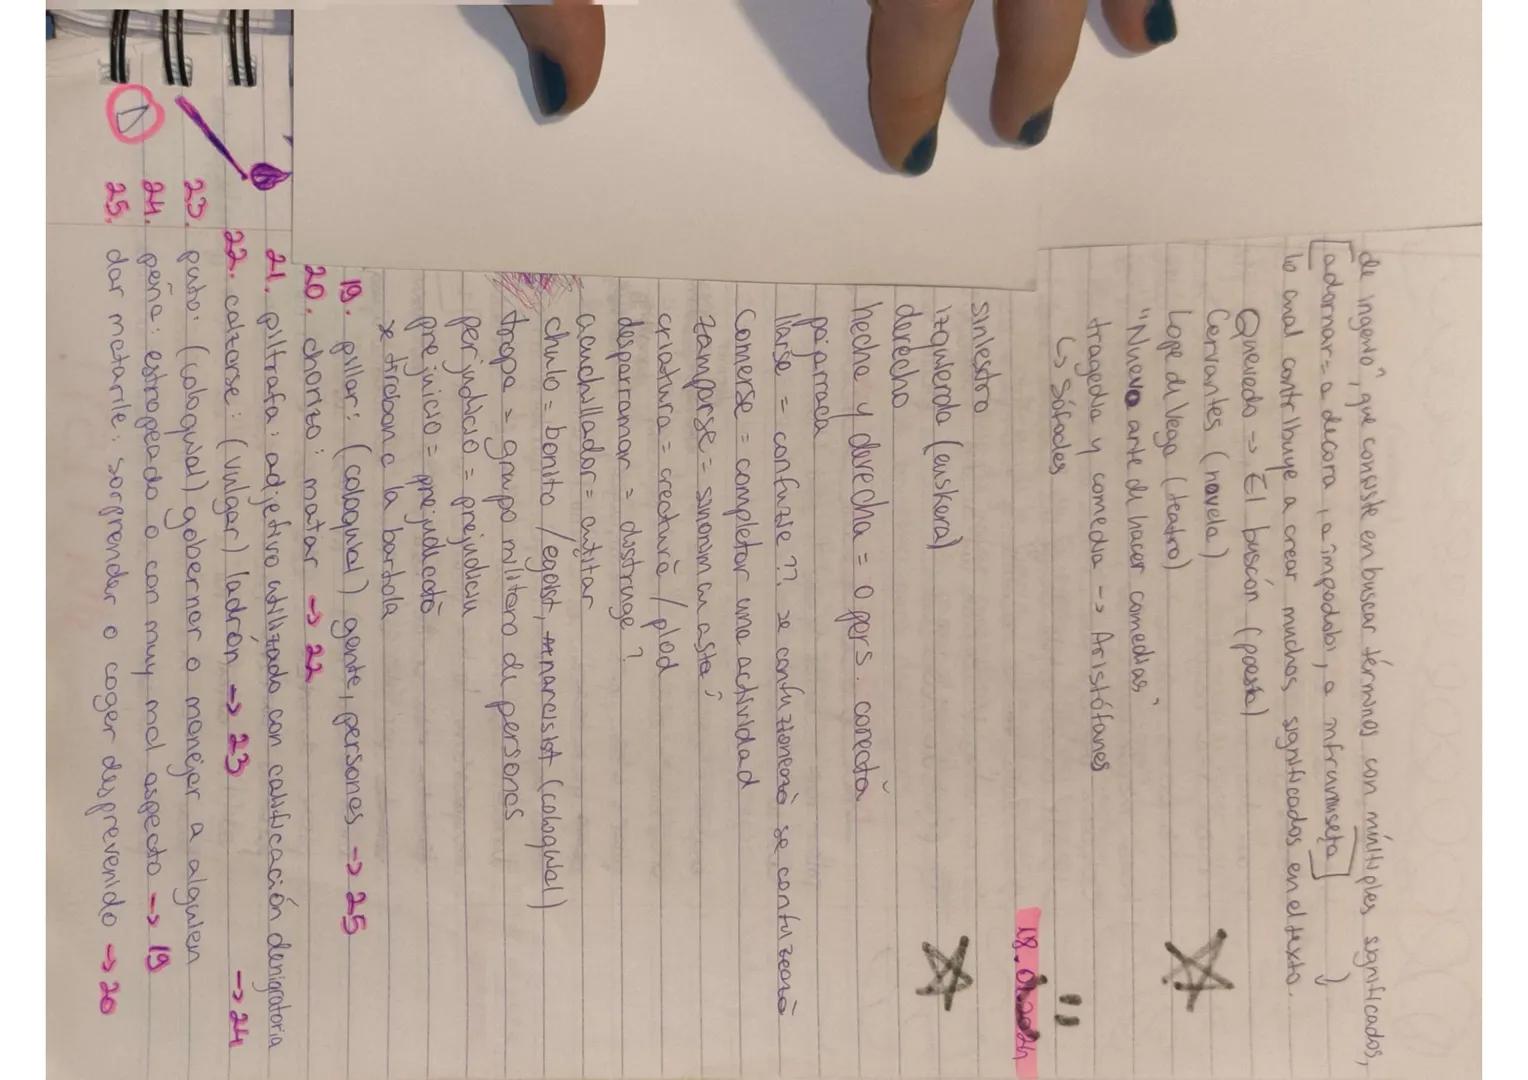 de ingenio", que consiste en buscar términos con múltiples significados,
[adornar = a decora, a împodobi, a înfrumuseța]
lo cual contribuye a crear muchos significados en el texto.
Quevedo -> El buscón (poesía)
Cervantes (novela)
Lope de Vega (teatro)
"Nuevo arte de hacer comedias"
tragedia y comedia -> Aristófanes
↳ Sófocles
18.01.2024
siniestro
izquierda (euskera)
derecho
hecha y derecha = o pers. corectă
pajarraca
liarse = confuzie ?? se confuzionează se confuzează
Comerse = completar una actividad
zamparse = sinonim cu asta
criatura = creatură / plod
desparramar = distruge ?
acuchillador = cuțitar
chulo = bonito / egoist, narcisist (coloquial)
tropa = grupo militaro de personas
perjudicio = prejudiciu
prejuicio = prejudecată
se tiraban a la bartola
19. pillar: (coloquial) gente, personas -> 25
20. chorizo: matar -> 22
21. piltrafa: adjetivo utilizado con calificación denigratoria -> 24
22. calzarse: (vulgar) ladrón -> 23
23. pato: (coloquial) gobernar o manejar a alguien
24. peña: estropeado o con muy mal aspecto -> 19
25. dar matarile: sorprender o coger desprevenido -> 20